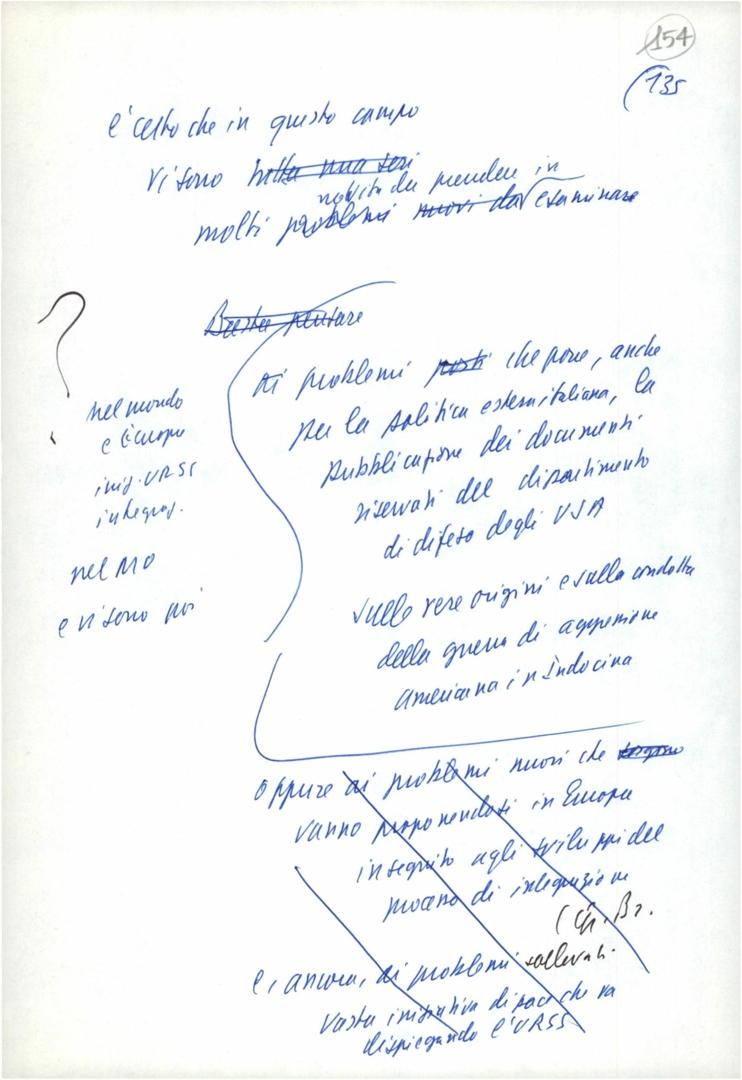 154
(135
è certo che in questo campo
vi sono tutta una seri
novità da prendere in
molti problemi nuovi da esaminare
?
Basta pensare
ai problemi posti che pone, anche
per la politica estera italiana, la
pubblicazione dei documenti
riservati del dipartimento
di difesa degli USA
sulle vere origini e sulla condotta
della guerra di aggressione
americana in Indocina
nel mondo
e l'Europa
iniz. URSS
integraz.
nel MO
e vi sono poi
oppure ai problemi nuovi che
vanno proponendosi in Europa
in seguito agli sviluppi del
processo di integrazione
e, ancora, ai problemi sollevati
vasta iniziativa di pace che va
dispiegando l'URSS